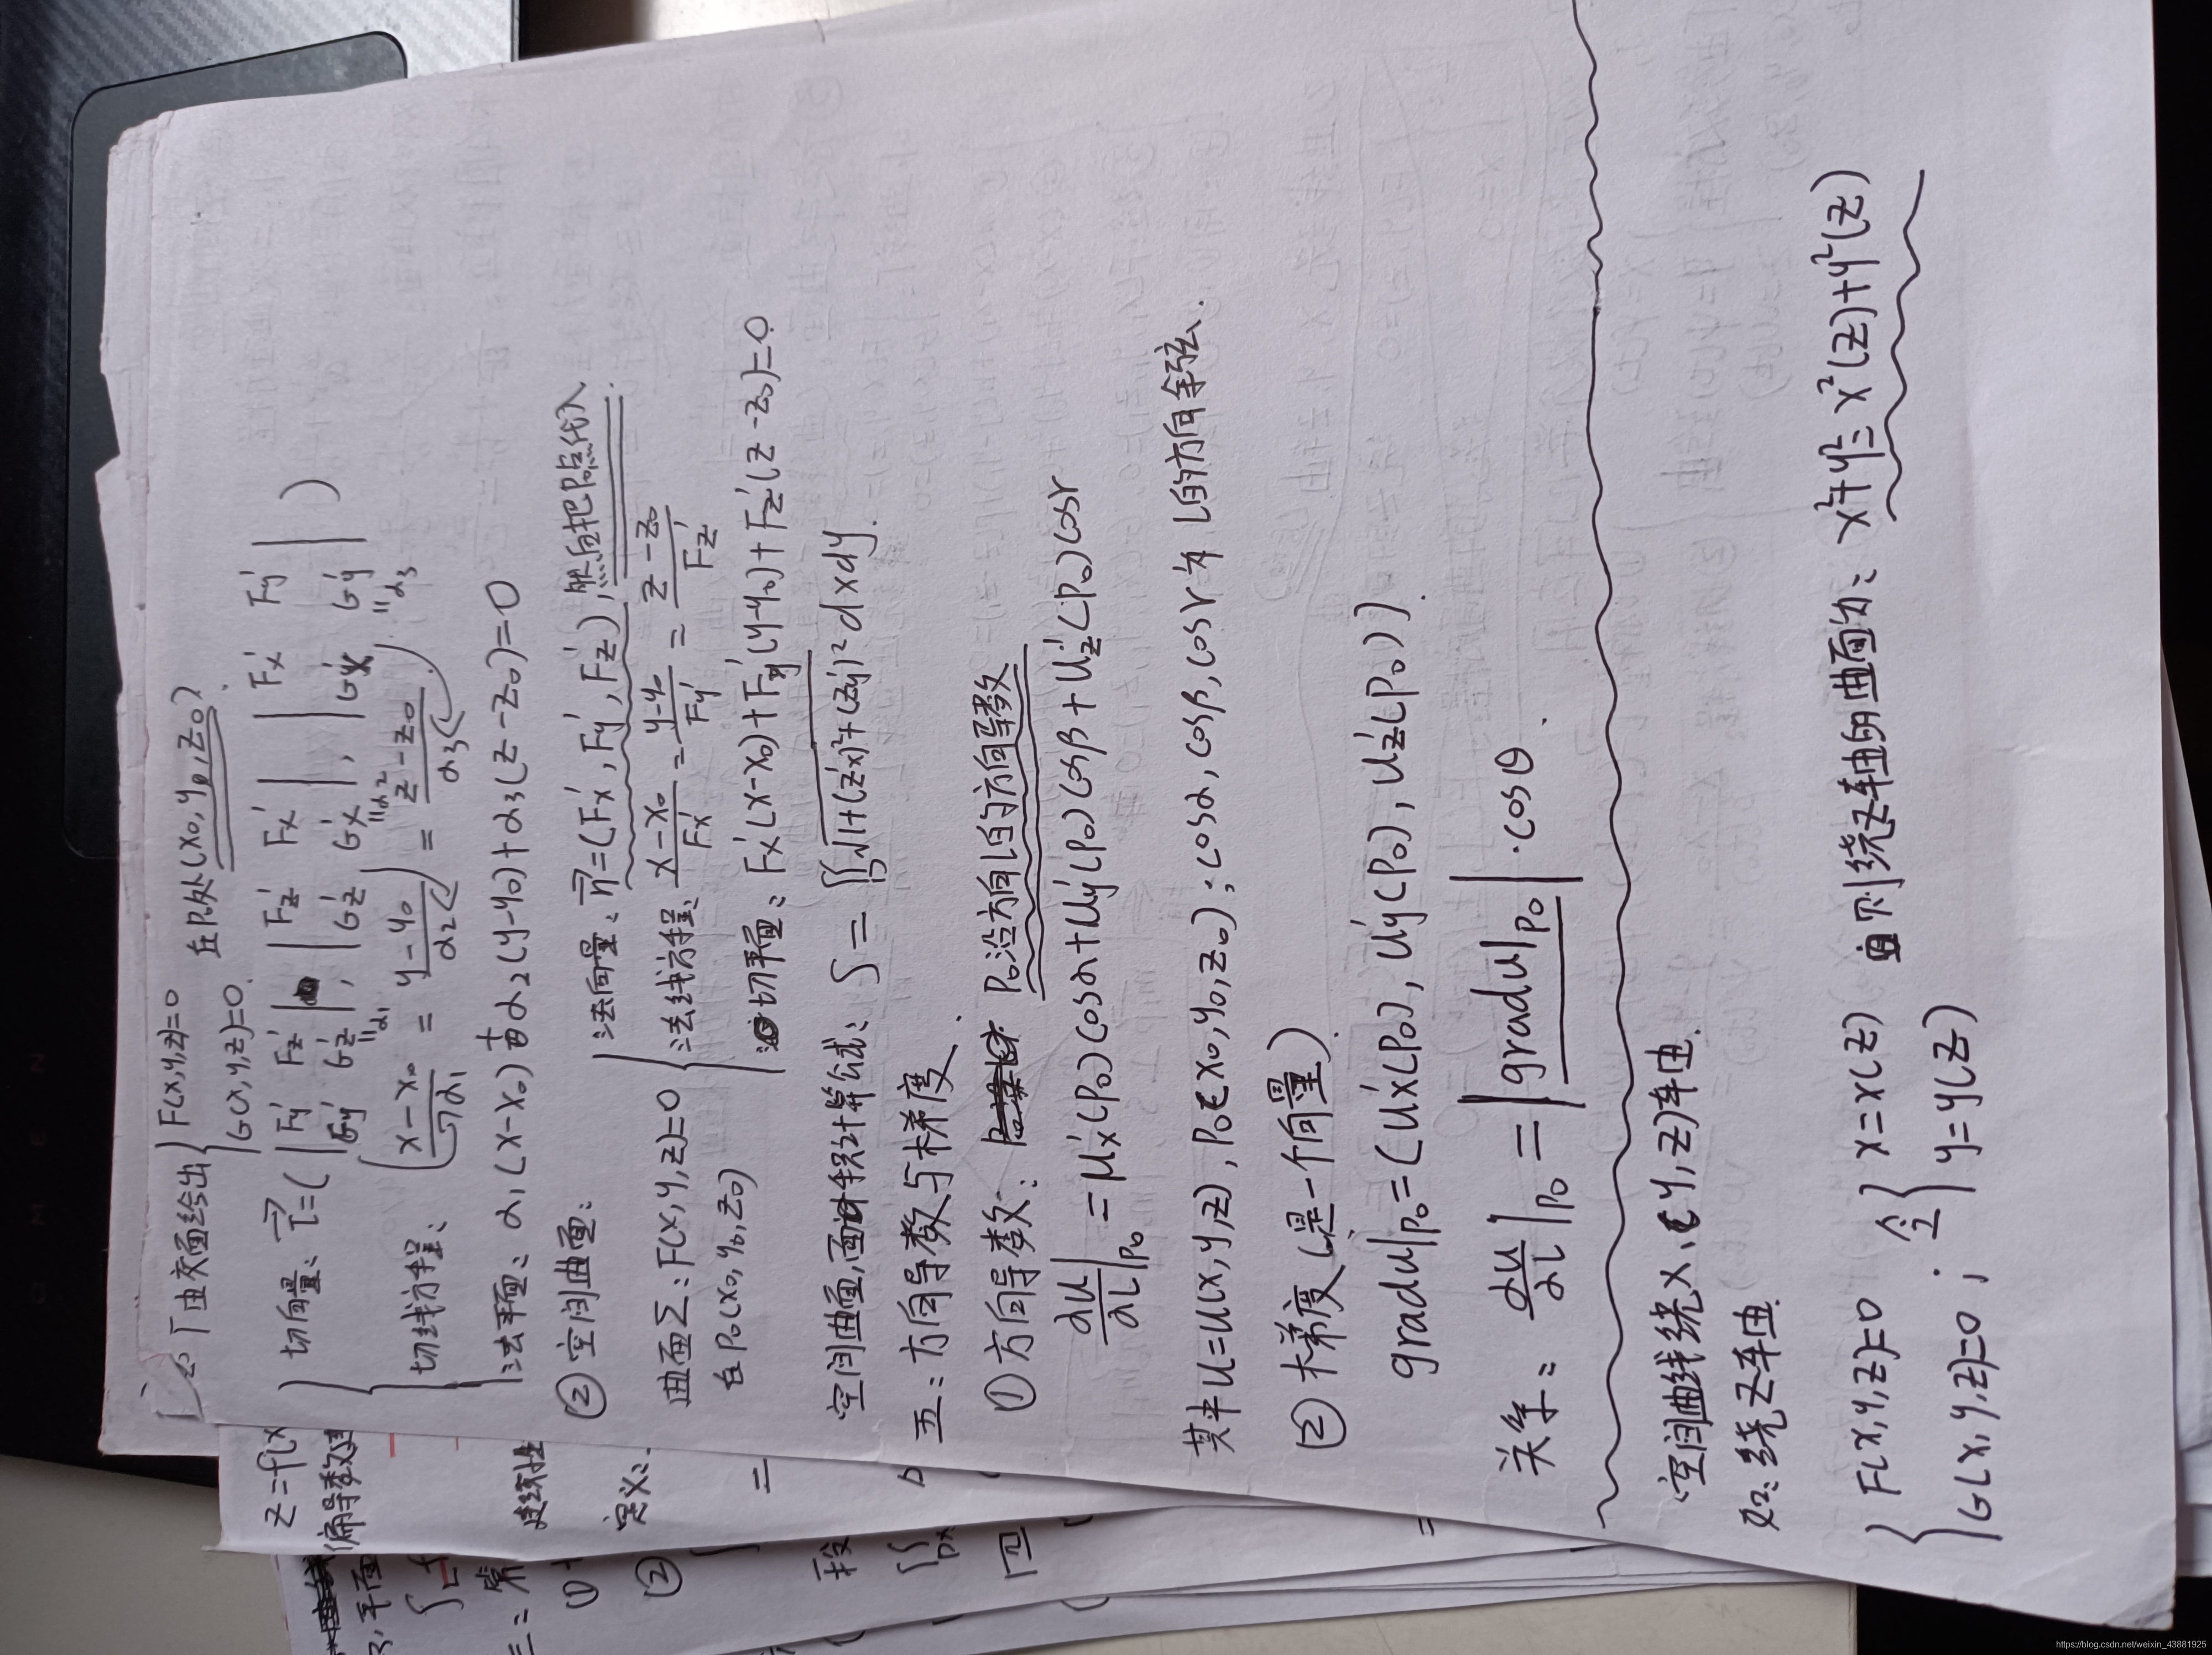 由交面给出 { F(x,y,z)=0
G(x,y,z)=0. 在P₀处(x₀,y₀,z₀).
切向量: T⃗=( | Fy' Fz' | | Fz' Fx' | | Fx' Fy' | )
| Gy' Gz' |, | Gz' Gx' |, | Gx' Gy' |
"α₁ "α₂ "α₃
切线方程: (x-x₀)/α₁ = (y-y₀)/α₂ = (z-z₀)/α₃
法平面: α₁(x-x₀)+α₂(y-y₀)+α₃(z-z₀)=0
② 空间曲面:
法向量: n⃗=(Fx', Fy', Fz'), 然后把P₀点代入.
曲面Σ: F(x,y,z)=0
在P₀(x₀,y₀,z₀)
法线方程: (x-x₀)/Fx' = (y-y₀)/Fy' = (z-z₀)/Fz'
切平面: Fx'(x-x₀)+Fy'(y-y₀)+Fz'(z-z₀)=0
空间曲面,面积计算试: S = ∬_D √(1+(z'x)²+(z'y)²) dxdy.
五: 方向导数与梯度.
① 方向导数: P₀沿方向l的方向导数
∂u/∂l|P₀ = u'x(P₀)cosα+u'y(P₀)cosβ+u'z(P₀)cosγ
其中u=u(x,y,z), P₀(x₀,y₀,z₀); cosα,cosβ,cosγ为l的方向余弦.
② 梯度(是一个向量)
gradu|P₀=(u'x(P₀), u'y(P₀), u'z(P₀)).
关系: ∂u/∂l|P₀ = |gradu|P₀|·cosθ.
空间曲线绕x,(y,z)轴.
如: 绕z轴.
{ F(x,y,z)=0
G(x,y,z)=0; 令 { x=x(z)
y=y(z) 则绕z轴的曲面为: x²+y²=x²(z)+y²(z)
z=f(x
偏导数
3,平面
连续性
三: 常
①
② 定义:
https://blog.csdn.net/weixin_43881925